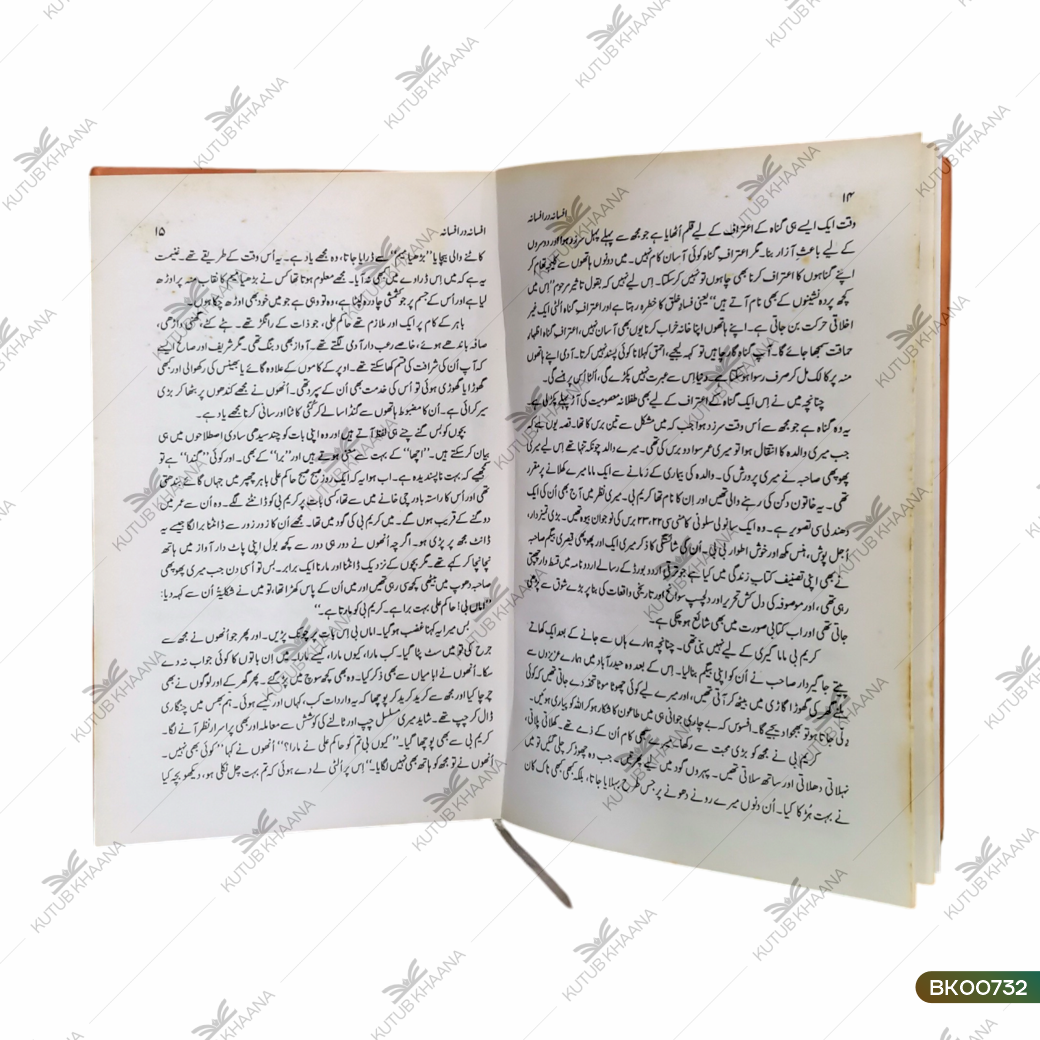 ۱۴
افسانہ در افسانہ
وقت ایک ایسے ہی گناہ کے اعتراف کے لیے قلم اُٹھایا ہے جو مجھ سے پہلے پہل سرزد ہوا اور دوسروں
کے لیے باعثِ آزار بنا۔ مگر اعترافِ گناہ کوئی آسان کام نہیں۔ میں دونوں ہاتھوں سے کلیجہ تھام کر
اپنے گناہوں کا اعتراف کرنا بھی چاہوں تو نہیں کر سکتا۔ اِس لیے نہیں کہ بقول تاثیر مرحوم "اِس میں
کچھ پردہ نشینوں کے بھی نام آتے ہیں" یعنی فسادِ خلق کا خطرہ رہتا ہے اور اعترافِ گناہ اُلٹی ایک غیر
اخلاقی حرکت بن جاتی ہے۔ اپنے ہاتھوں اپنا خانہ خراب کرنا یوں بھی آسان نہیں، اعترافِ گناہ اظہارِ
حماقت سمجھا جائے گا۔ آپ گناہ گار چاہیں تو کہہ لیجیے، احمق کہلانا کوئی پسند نہیں کرتا۔ آدمی اپنے ہاتھوں
منہ پر کالک مل کر صرف رسوا ہو سکتا ہے۔ دنیا اِس سے عبرت نہیں پکڑے گی، اُلٹا اِس پر ہنسے گی۔
چنانچہ میں نے اِس ایک گناہ کے اعتراف کے لیے بھی طفلانہ معصومیت کی آڑ پہلے پکڑ لی ہے۔
یہ وہ گناہ ہے جو مجھ سے اُس وقت سرزد ہوا جب کہ میں مشکل سے تین برس کا تھا۔ قصہ یوں ہے کہ
جب میری والدہ کا انتقال ہوا تو میری عمر سوا دو برس کی تھی۔ میرے والد چونکہ تنہا تھے اِس لیے میری
پھوپھی صاحبہ نے میری پرورش کی۔ والدہ کی بیماری کے زمانے سے ایک ماما میرے کھلانے پر مقرر
تھی۔ یہ خاتون دکن کی رہنے والی تھیں اور اِن کا نام تھا کریم بی۔ میری نظر میں آج بھی اُن کی ایک
دھندلی سی تصویر ہے۔ وہ ایک سانولی سلونی کامنی سی ۲۲، ۲۳ برس کی نوجوان بیوہ تھیں۔ بڑی تمیزدار،
اُجل پوش، ہنس مکھ اور خوش اطوار بی بی۔ اُن کی شائستگی کا ذکر میری ایک اور پھوپھی قیصری بیگم صاحبہ
نے بھی اپنی تصنیف کتابِ زندگی میں کیا ہے جو ترقی اُردو بورڈ کے رسالے اردو نامہ میں قسط وار چھپتی
رہی تھی، اور موصوفہ کی دل کش تحریر اور دلچسپ سوانح اور تاریخی واقعات کی بنا پر بڑے شوق سے پڑھی
جاتی تھی اور اب کتابی صورت میں بھی شائع ہو چکی ہے۔
کریم بی ماما گیری کے لیے نہیں بنی تھی۔ چنانچہ ہمارے ہاں سے جانے کے بعد ایک کھاتے
پیتے جاگیردار صاحب نے اُن کو اپنی بیگم بنا لیا۔ اِس کے بعد وہ حیدرآباد میں ہمارے عزیزوں سے
ملنے گھر کی گھوڑا گاڑی میں بیٹھ کر آتی تھیں، اور میرے لیے کوئی چھوٹا موٹا تحفہ دے جاتی تھیں کہ کوئی
دلّی جاتا ہو تو بھجوا دیجیے گا۔ افسوس کہ بے چاری جوانی ہی میں طاعون کا شکار ہو کر اللہ کو پیاری ہوئیں۔
کریم بی نے مجھ کو بڑی محبت سے رکھا۔ میرے سبھی کام اُن کے ذمے تھے۔ کھلاتی پلاتی،
نہلاتی دھلاتی اور ساتھ سلاتی تھیں۔ پہروں گود میں لیے پھرتیں۔ جب وہ چھوڑ کر چلی گئیں تو میں
نے بہت ہڑکا کیا۔ اُن دنوں میرے رونے دھونے پر جس طرح بہلایا جاتا، بلکہ کبھی کبھی ناک کان
افسانہ در افسانہ
۱۵
کاٹنے والی بیچایا "بڑھیا نیم" سے ڈرایا جاتا، وہ مجھے یاد ہے۔ یہ اُس وقت کے طریقے تھے۔ غنیمت
یہ ہے کہ میں اِس ڈراوے میں کبھی نہ آیا۔ مجھے معلوم ہوتا تھا کس نے بڑھیا نیم کا نقاب منہ پر اوڑھ
لیا ہے اور اُس کے جسم پر جو کشتی چادرہ لپٹا ہے، وہ تو وہی ہے جو میں خود بھی اوڑھ چکا ہوں۔
باہر کے کام پر ایک اور ملازم تھے حاکم علی، جو ذات کے رانگڑ تھے۔ ہٹے کٹے، گھنی داڑھی،
صافہ باندھے ہوئے، خاصے رعب دار آدمی لگتے تھے۔ آواز بھی دبنگ تھی۔ مگر شریف اور صالح ایسے
کہ آپ اُن کی شرافت کی قسم کھا سکتے تھے۔ اوپر کے کاموں کے علاوہ گائے یا بھینس کی رکھوالی اور بھی
گھوڑا یا گھوڑی ہوئی تو اُس کی خدمت بھی اُن کے سپرد تھی۔ اُنھوں نے مجھے کندھوں پر بٹھا کر بڑی
سیر کرائی ہے۔ اُن کا مضبوط ہاتھوں سے گنڈاسا لے کر کُٹی کاٹنا اور سانی کرنا مجھے یاد ہے۔
بچوں کو بس گنے چنے ہی لفظ آتے ہیں اور وہ اپنی بات کو چند سیدھی سادی اصطلاحوں میں ہی
بیان کر سکتے ہیں۔ "اچھا" کے بہت سے معنی ہوتے ہیں اور "برا" کے بھی۔ اور کوئی "گندا" ہے تو
سمجھیے کہ بہت ناپسندیدہ ہے۔ اب ہوا یہ کہ ایک روز صبح صبح حاکم علی باہر چھپر میں جہاں گائے بندھتی
تھی اور اُس کا راستہ باورچی خانے میں سے تھا، کسی بات پر کریم بی کو ڈانٹنے لگے۔ وہ اُن سے عمر میں
دوگنے کے قریب ہوں گے۔ میں کریم بی کی گود میں تھا۔ مجھے اُن کا زور زور سے ڈانٹنا برا لگا جیسے یہ
ڈانٹ مجھ پر پڑی ہو۔ اگرچہ اُنھوں نے دور ہی دور سے کچھ بول اپنی پاٹ دار آواز میں ہاتھ
نچا نچا کر کہے تھے۔ مگر بچوں کے نزدیک ڈانٹنا اور مارنا ایک برابر۔ بس تو اُسی دن جب میری پھوپھی
صاحبہ دھوپ میں بیٹھی کچھ سی رہی تھیں اور میں اُن کے پاس کھڑا تھا، تو میں نے شکایتاً اُن سے کہہ دیا:
"اماں بی! حاکم علی بہت برا ہے۔ کریم بی کو مارتا ہے۔"
بس میرا یہ کہنا غضب ہو گیا۔ اماں بی اس بات پر چونک پڑیں۔ اور پھر جو اُنھوں نے مجھ سے
جرح کی تو میں سٹ پٹا گیا۔ کب مارا، کیوں مارا، کیسے مارا۔ میں اِن باتوں کا کوئی جواب نہ دے
سکا۔ اُنھوں نے ابا میاں سے بھی ذکر کیا۔ وہ بھی کچھ سوچ میں پڑ گئے۔ پھر گھر کے اور لوگوں نے بھی
چرچا کیا اور مجھ سے کرید کرید کر پوچھا کہ یہ واردات کب، کہاں اور کیسے ہوئی۔ ہم بھس میں چنگاری
ڈال کر چپ تھے۔ شاید میری مسلسل چپ اور ٹالنے کی کوشش سے معاملہ اور بھی پراسرار نظر آنے لگا۔
کریم بی سے بھی پوچھا گیا۔ "کیوں بی تم کو حاکم علی نے مارا؟" اُنھوں نے کہا "کوئی بھی نہیں۔
اُنھوں نے تو مجھ کو ہاتھ بھی نہیں لگایا۔" اِس پر اُلٹی لے دے ہوئی کہ تم بہت چل نکلی ہو، دیکھو بچہ کیا
KUTUB KHAANA
BK00732